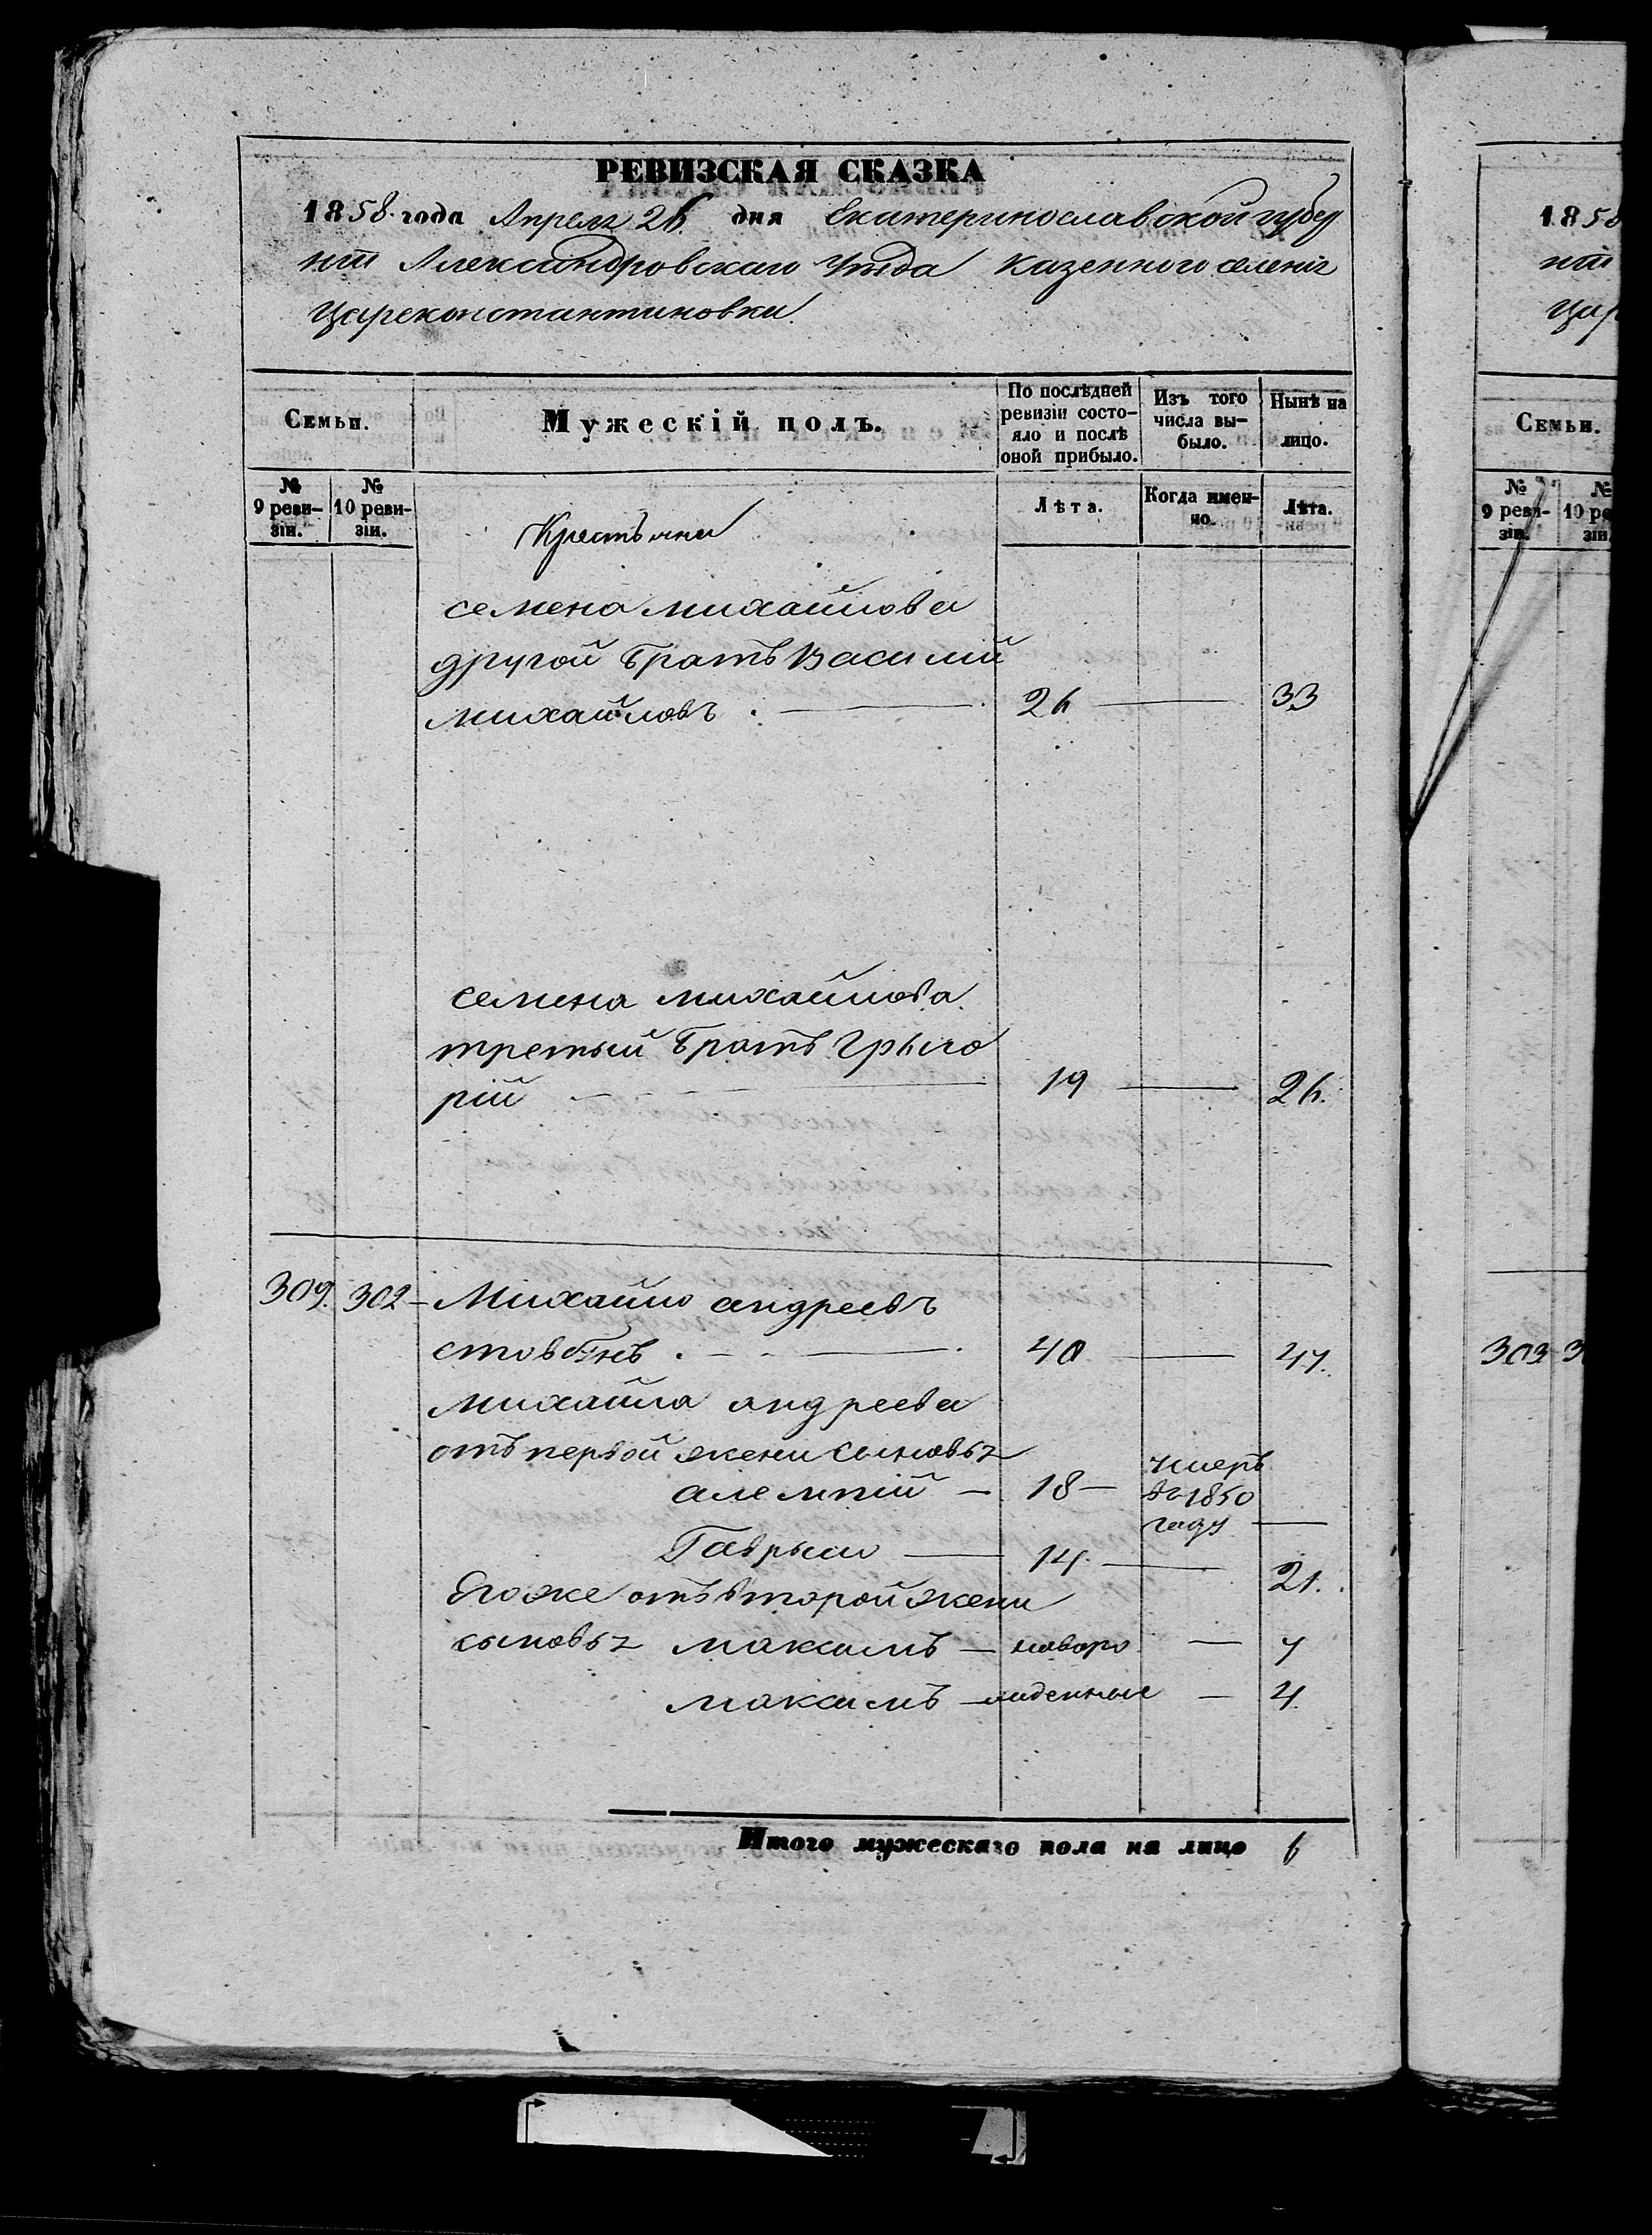 РЕВИЗСКАЯ СКАЗКА
1858. года Апреля 26. дня Екатеринославской губер
нии Александровскаго Уезда Казенного селения
Цареконстантиновки.
Семьи. Мужескій полъ. По послѣдней ревизіи состо- яло и послѣ оной прибыло. Изъ того числа вы- было. Нынѣ на лицо.
№ 9 реви- зіи. № 10 реви- зіи. Лѣта. Когда имен- но. Лѣта.
Крестьяне
семена михайлова
другой братъ Василий
михайловъ . — 26 — 33
семена михайлова
третый братъ Грыго
рій — 19 — 26.
309. 302 – Михайло андреевъ
40 — 47.
михайла андреева
отъ первой жени сыновья
алемпій – 18 – умеръ
въ 1850
году —
Гаврыло — 14. — 21.
Егоже отъ второй жени
сыновья максимъ – новоро – 7
максимъ – жденные – 4.
Итого мужескаго пола на лицо 6
1858
нии
Цар
Семьи.
№ 9 реви- зіи. № 10 ре зіи.
303 3